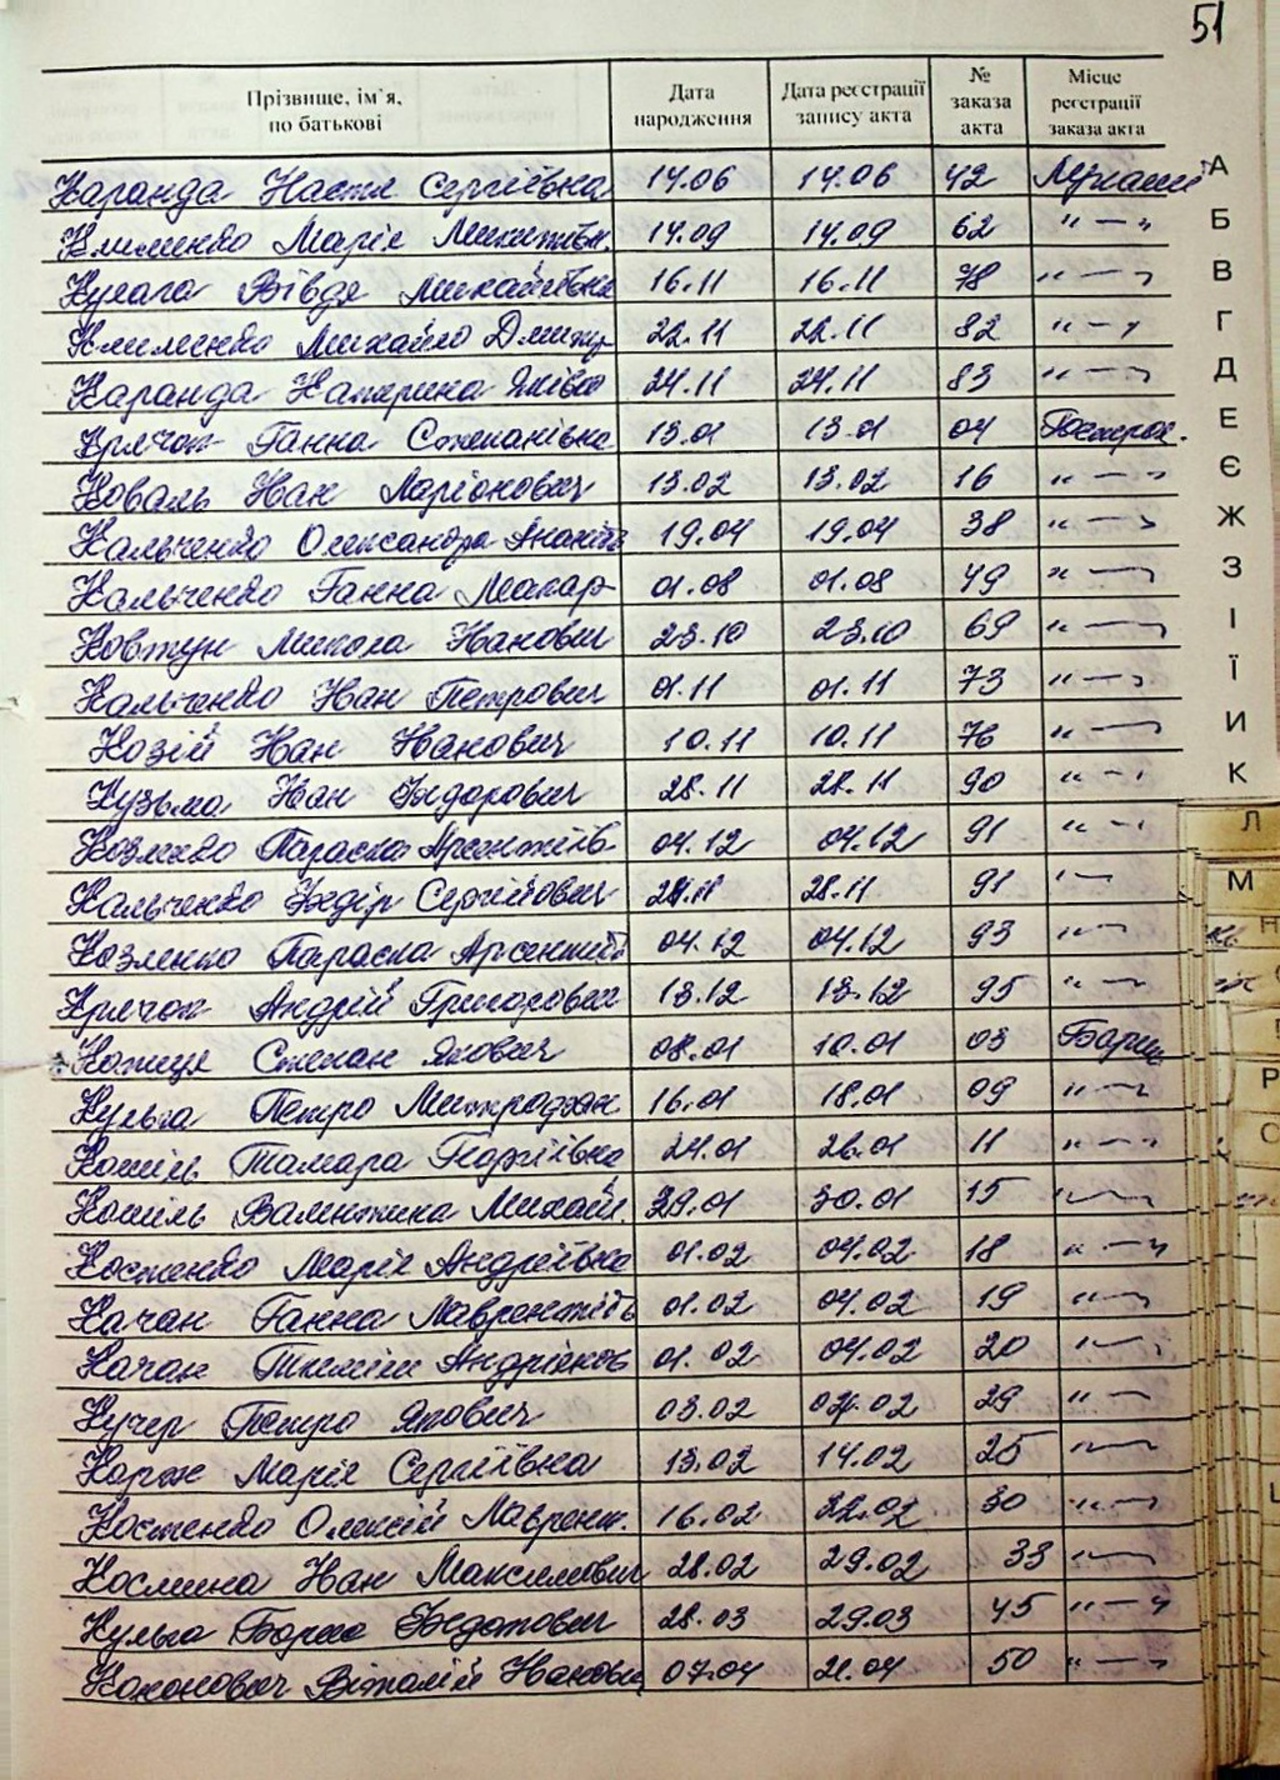 51
Прізвище, ім`я, по батькові Дата народження Дата реєстрації запису акта № заказа акта Місце реєстрації заказа акта
Каранда Настя Сергіївна 14.06 14.06 42
Клименко Марія Микитівн. 14.09 14.09 62 " — "
Кулага Вівдя Михайлівна 16.11 16.11 78 " — "
Клименко Михайло Дмитр 22.11 22.11 82 " — "
Каранда Катерина Яківна 24.11 24.11 83 " — "
Крячок Ганна Степанівна 13.01 13.01 04
Коваль Іван Ларіонович 13.02 13.02 16 " — "
Кальченко Олександра Ананіїв 19.04 19.04 38 " — "
Кальченко Ганна Макар 01.08 01.08 49 " — "
Ковтун Микола Іванович 23.10 23.10 69 " — "
Кальченко Іван Петрович 01.11 01.11 73 " — "
Козій Іван Іванович 10.11 10.11 76 " — "
Кузьма Іван Федорович 28.11 28.11 90 " — "
Козленко Параска Арсентіїв 04.12 04.12 91 " — "
Кальченко Федір Сергійович 28.11 28.11 91 " — "
Козленко Параска Арсентіїв 04.12 04.12 93 " — "
Крячок Андрій Григорович 13.12 13.12 95 " — "
Степан Якович 08.01 10.01 03 Бариш
Кульга Петро Митрофан 16.01 18.01 09 " — "
Кошіль Тамара Георгіївна 24.01 26.01 11 " — "
Кошіль Валентина Михайл. 29.01 30.01 15 " — "
Костенко Марія Андріївна 01.02 04.02 18 " — "
Качан Ганна Лаврентіїв 01.02 04.02 19 " — "
Качан 01.02 04.02 20 " — "
Кучер Петро Якович 03.02 04.02 29 " — "
Корж Марія Сергіївна 13.02 14.02 25 " — "
Костенко Олексій Лаврент. 16.02 22.02 30 " — "
Косміна Іван Максимович 28.02 29.02 33 " — "
Кульга Борис Федотович 28.03 29.03 45 " — "
Кононович Віталій Іванович 07.04 21.04 50 " — "
А
Б
В
Г
Д
Е
Є
Ж
З
І
Ї
И
К
Л
М
Н
Р
С